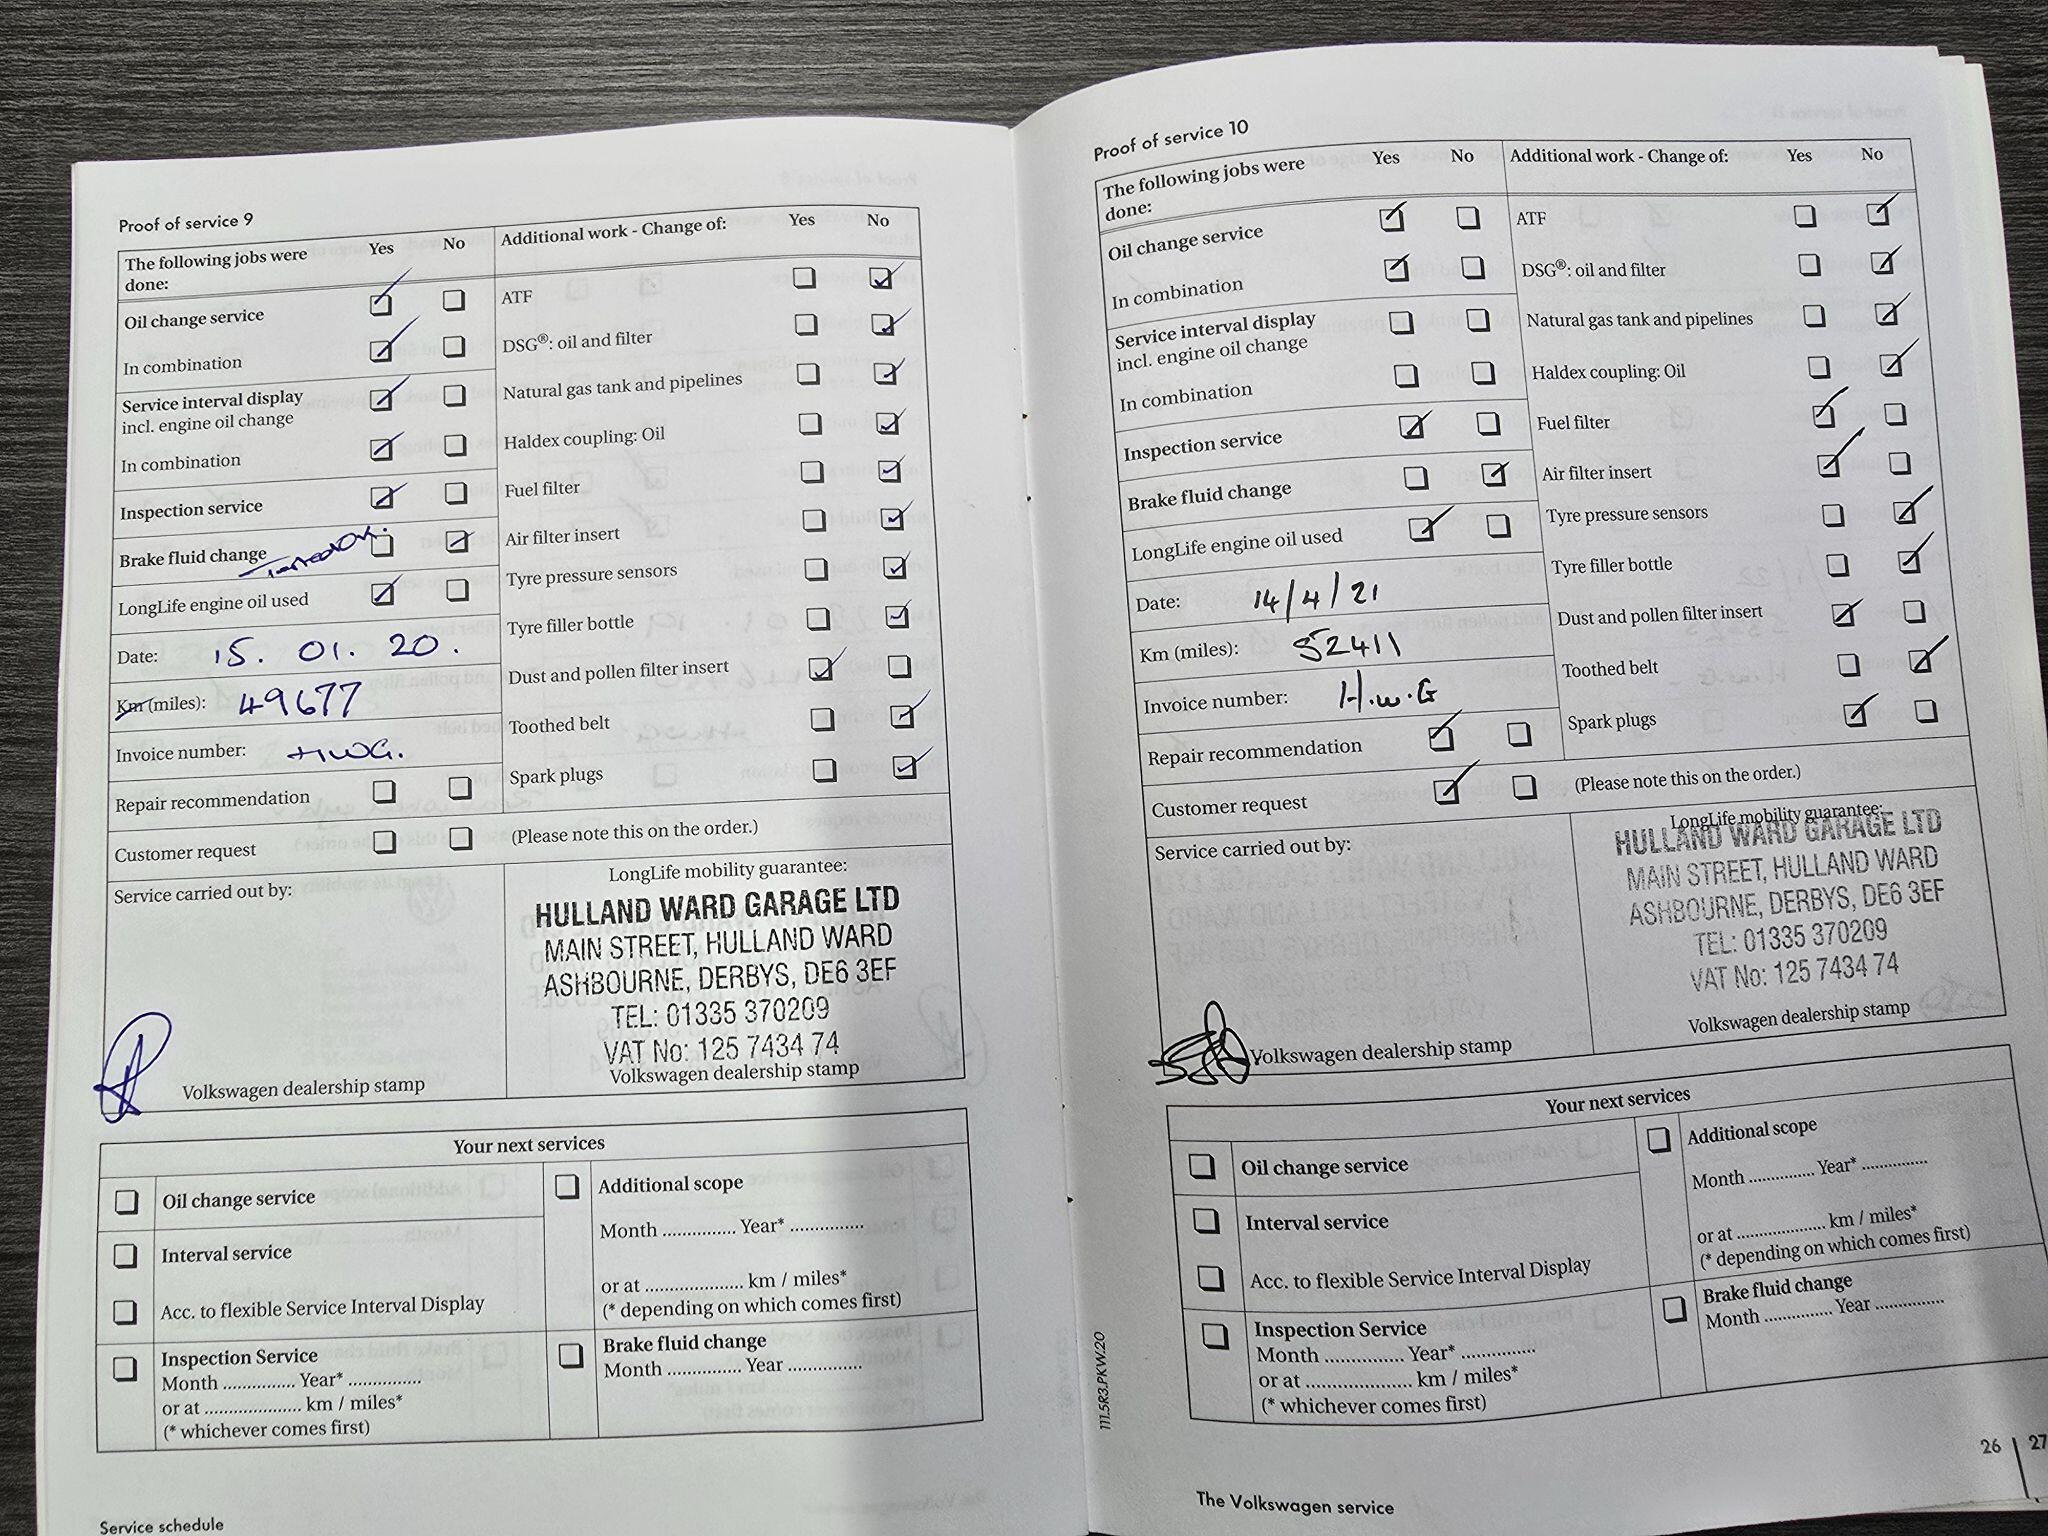 Proof of service 9
The following jobs were done: Yes No
Oil change service
In combination
Service interval display
incl. engine oil change
In combination
Inspection service
Brake fluid change Tested OK.
LongLife engine oil used
Date: 15. 01. 20.
Km (miles): 49677
Invoice number: HWG.
Repair recommendation
Customer request
(Please note this on the order.)
Additional work - Change of: Yes No
ATF
DSG®: oil and filter
Natural gas tank and pipelines
Haldex coupling: Oil
Fuel filter
Air filter insert
Tyre pressure sensors
Tyre filler bottle
Dust and pollen filter insert
Toothed belt
Spark plugs
Service carried out by:
Volkswagen dealership stamp
LongLife mobility guarantee:
HULLAND WARD GARAGE LTD
MAIN STREET, HULLAND WARD
ASHBOURNE, DERBYS, DE6 3EF
TEL: 01335 370209
VAT No: 125 7434 74
Volkswagen dealership stamp
Your next services
Oil change service
Interval service
Acc. to flexible Service Interval Display
Inspection Service
Month .............. Year* ..............
or at .................... km / miles*
(* whichever comes first)
Additional scope
Month .............. Year* ..............
or at .................... km / miles*
(* depending on which comes first)
Brake fluid change
Month .............. Year ..............
Service schedule
Proof of service 10
The following jobs were
done: Yes No
Oil change service
In combination
Service interval display
incl. engine oil change
In combination
Inspection service
Brake fluid change
LongLife engine oil used
Date: 14/4/21
Km (miles): 52411
Invoice number: H.W.G
Repair recommendation
Customer request
(Please note this on the order.)
Additional work - Change of: Yes No
ATF
DSG®: oil and filter
Natural gas tank and pipelines
Haldex coupling: Oil
Fuel filter
Air filter insert
Tyre pressure sensors
Tyre filler bottle
Dust and pollen filter insert
Toothed belt
Spark plugs
Service carried out by:
Volkswagen dealership stamp
LongLife mobility guarantee:
HULLAND WARD GARAGE LTD
MAIN STREET, HULLAND WARD
ASHBOURNE, DERBYS, DE6 3EF
TEL: 01335 370209
VAT No: 125 7434 74
Volkswagen dealership stamp
Your next services
Oil change service
Interval service
Acc. to flexible Service Interval Display
Inspection Service
Month .............. Year* ..............
or at .................... km / miles*
(* whichever comes first)
Additional scope
Month .............. Year* ..............
or at .................... km / miles*
(* depending on which comes first)
Brake fluid change
Month .............. Year ..............
111.5R3.PKW.20
The Volkswagen service
26 | 27